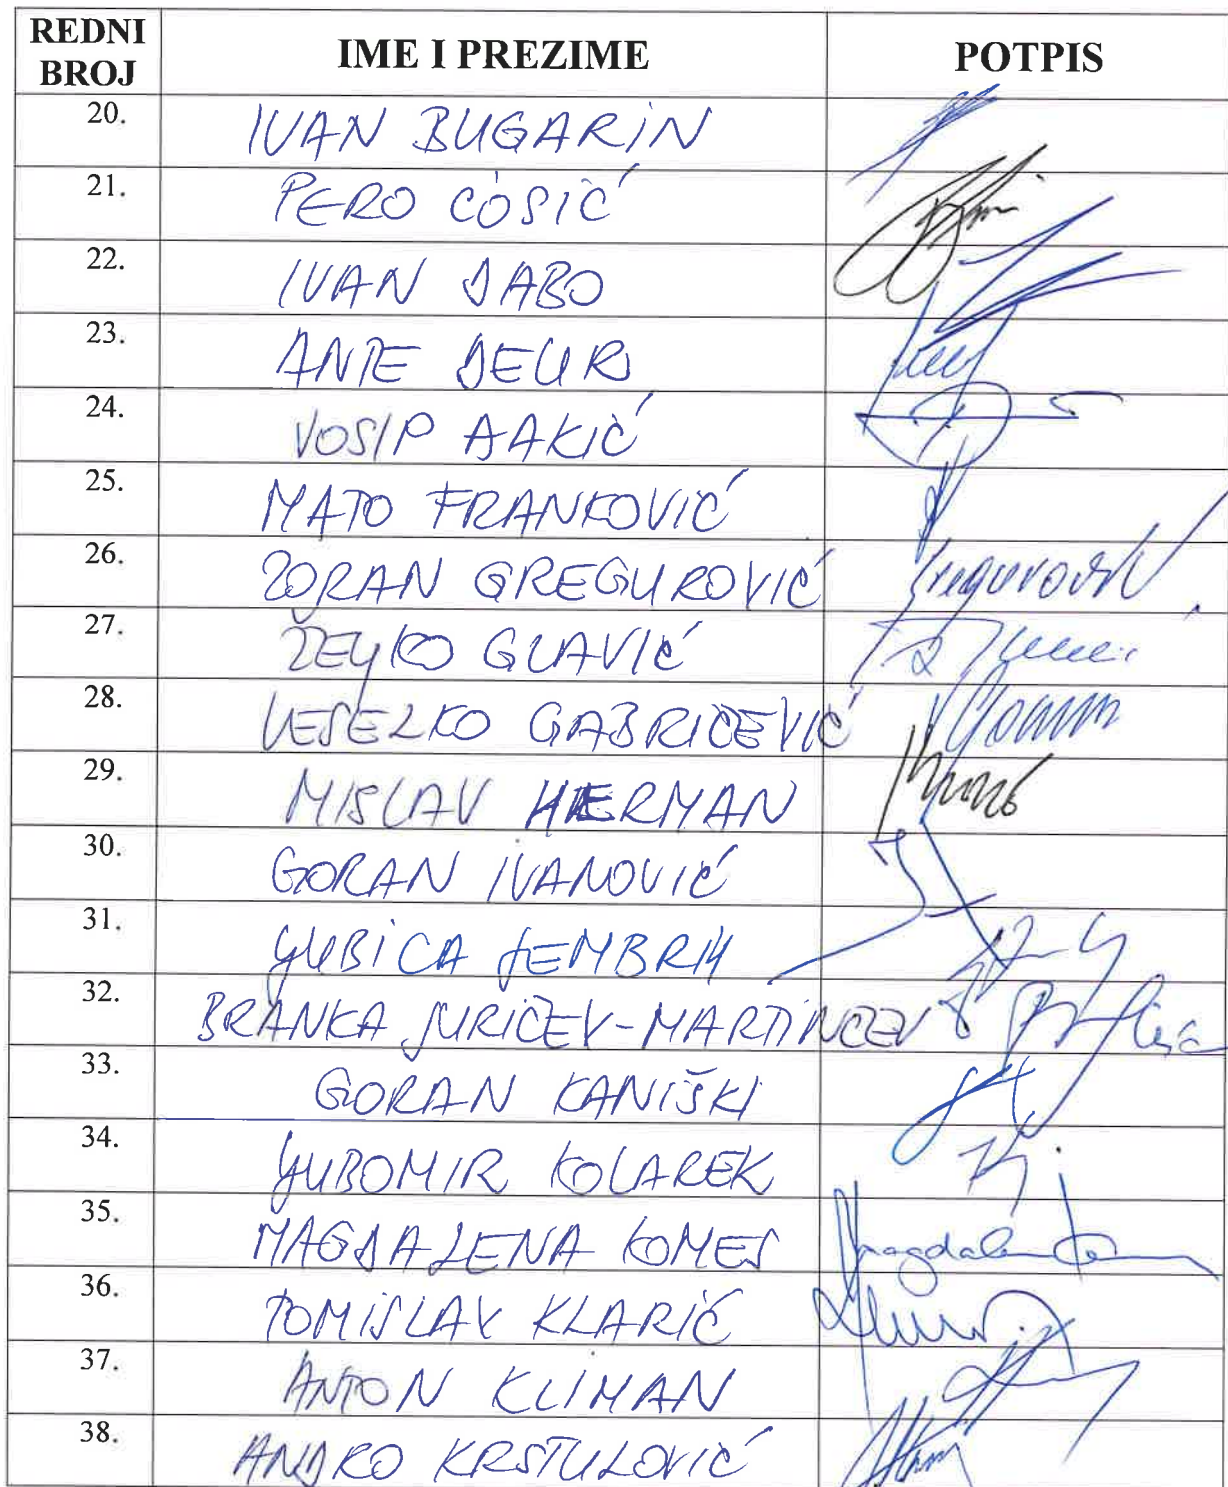 REDNI BROJ IME I PREZIME POTPIS
20. IVAN BUGARIN
21. PERO ĆOSIĆ
22. IVAN DABO
23. ANTE DEUR
24. JOSIP ĐAKIĆ
25. MATO FRANKOVIĆ
26. ZORAN GREGUROVIĆ Gregurović
27. ŽELJKO GLAVIĆ
28. VESELKO GABRIČEVIĆ
29. MISLAV HERMAN
30. GORAN IVANOVIĆ
31. LJUBICA JEMBRIH
32. BRANKA JURIČEV-MARTINČEV
33. GORAN KANIŠKI
34. LJUBOMIR KOLAREK
35. MAGDALENA KOMES Magdalena
36. TOMISLAV KLARIĆ
37. ANTON KLIMAN
38. ANDRO KRSTULOVIĆ